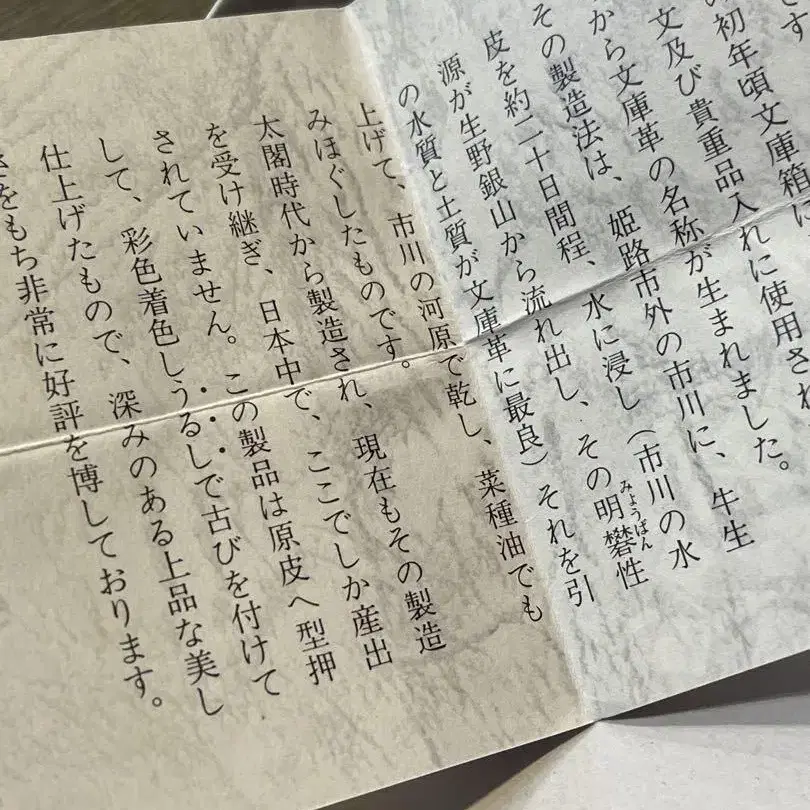 す
の初年頃文庫箱に
文及び貴重品入れに使用され
から文庫革の名称が生まれました。
その製造法は、姫路市外の市川に、牛生
皮を約二十日間程、水に浸し（市川の水
みょうばん
源が生野銀山から流れ出し、その明礬性
の水質と土質が文庫革に最良）それを引
上げて、市川の河原で乾し、菜種油でも
みほぐしたものです。
太閤時代から製造され、現在もその製造
を受け継ぎ、日本中で、ここでしか産出
されていません。この製品は原皮へ型押
して、彩色着色しうるしで古びを付けて
仕上げたもので、深みのある上品な美し
さをもち非常に好評を博しております。